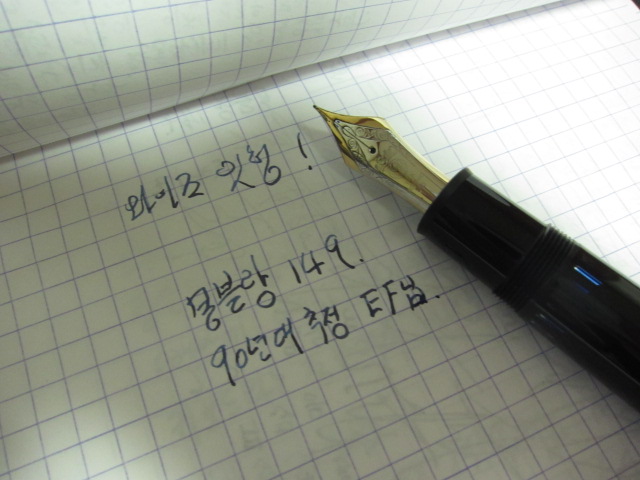 와이즈 잇힝!
몽블랑 149.
90년여 추정 EF닙.